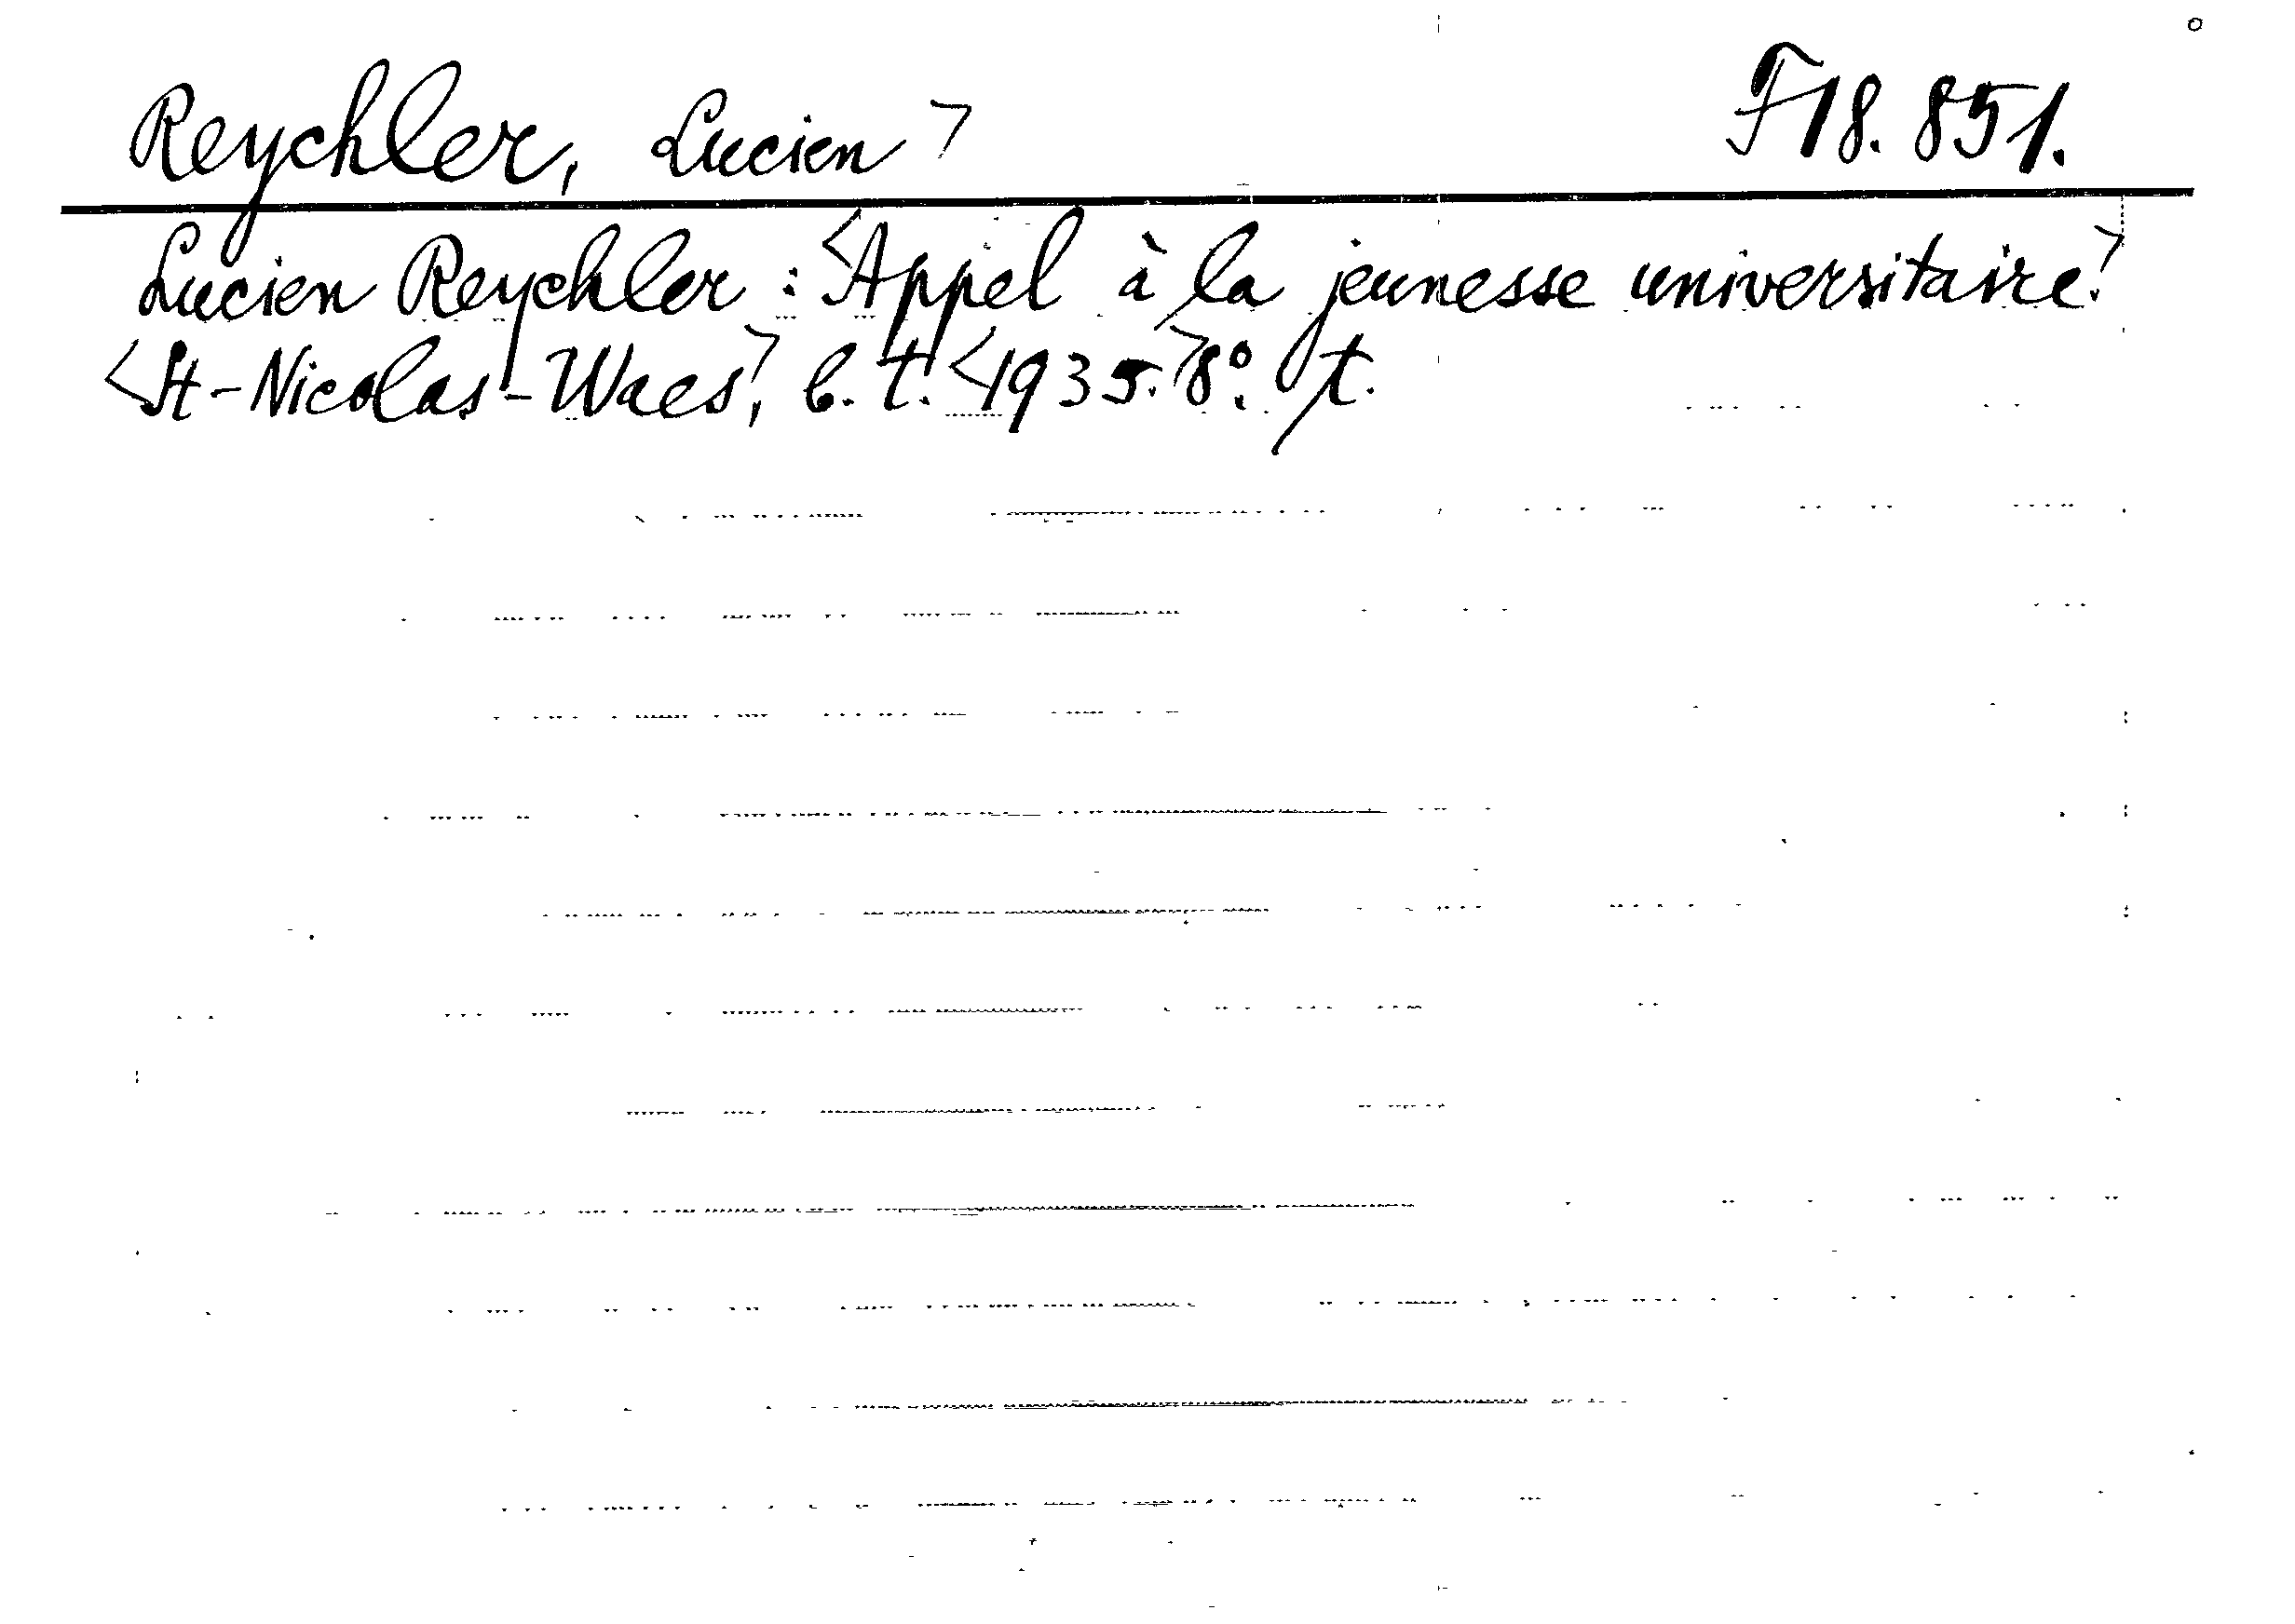 Reychler, Lucien> F18.851.
Lucien Reychler: <Appel à la jeunesse universitaire.>
<St-Nicolas-Waes>, b. t. <1935.> 8°. pt.